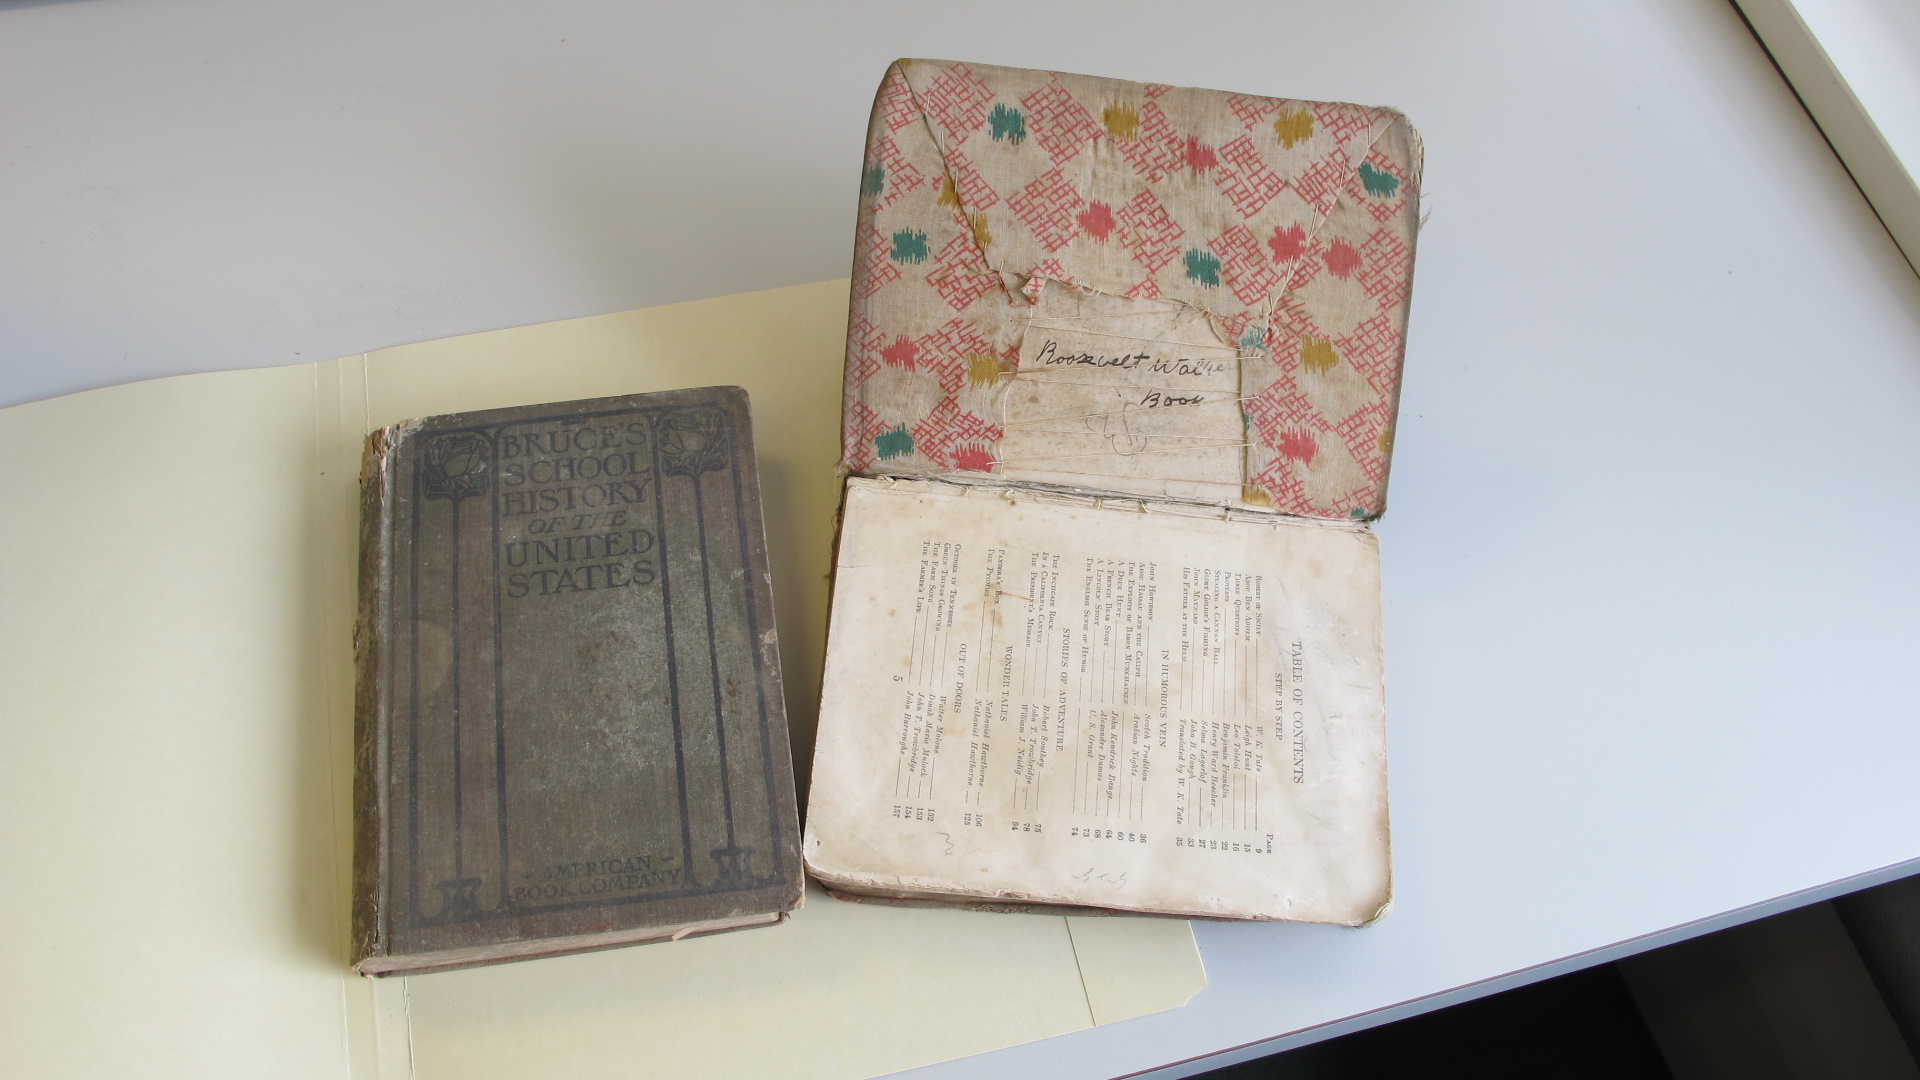 BRUCE'S
SCHOOL
HISTORY
OF THE
UNITED
STATES
AMERICAN
BOOK COMPANY
Roosevelt Walke
Book
TABLE OF CONTENTS
STEP BY STEP
PAGE
ROBERT OF SICILY W. K. Tate 9
ABOU BEN ADHEM Leigh Hunt 15
THREE QUESTIONS Leo Tolstoi 16
PROVERBS Benjamin Franklin 22
STEALING A CANNON BALL Henry Ward Beecher 23
GLORY GOLDIE'S FISHING Selma Lagerlof 27
JOHN MAYNARD John B. Gough 33
HIS FATHER AT THE HELM Translated by W. K. Tate 35
IN HUMOROUS VEIN
JOHN HOWIESON Scotch Tradition 36
ABOU HASSAN AND THE CALIPH Arabian Nights 40
THE EXPLOITS OF BARON MUNCHAUSEN 60
A DUCK HUNT John Kendrick Bangs 64
A FRENCH BEAR STORY Alexandre Dumas 68
A LINCOLN STORY U. S. Grant 73
THE ENGLISH SENSE OF HUMOR 74
STORIES OF ADVENTURE
THE INCHCAPE ROCK Robert Southey 75
IN A CALIFORNIA CANYON John T. Trowbridge 78
THE PRESIDENT'S MESSAGE William J. Neidig 94
WONDER TALES
PANDORA'S BOX Nathaniel Hawthorne 106
THE PYGMIES Nathaniel Hawthorne 125
OUT OF DOORS
OCTOBER IN TENNESSEE Walter Malone 152
GREEN THINGS GROWING Dinah Maria Mulock 153
THE FARM SONG John T. Trowbridge 154
THE FARMER'S LIFE John Burroughs 157
5